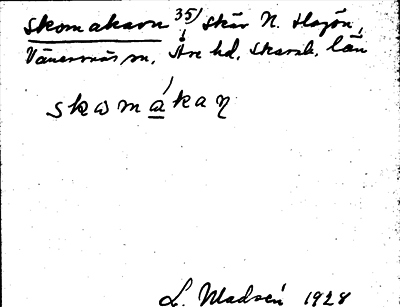 Skomakarn 35/ skär N. Hagön,
Vänersnäs sn, Åse hd, Skarab. län
skomákaŋ
L. Madsén 1928